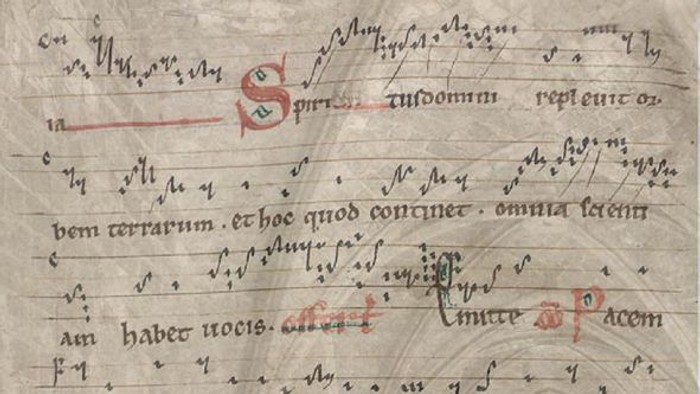 ia Spiritus domini repleuit or
bem terrarum . et hoc quod continet . omnia scienti
am habet uocis . offert Emitte Pacem